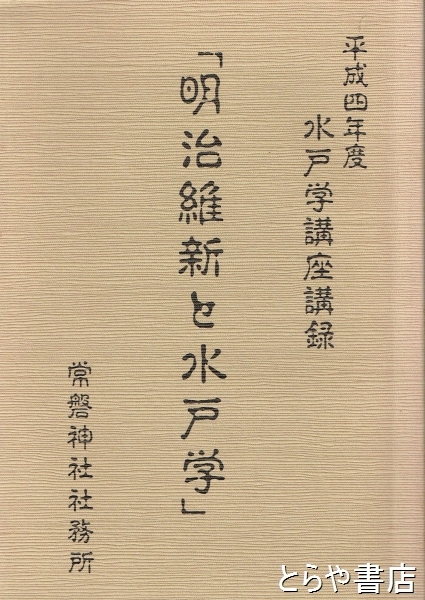 平成四年度
水戸学講座講録
「明治維新と水戸学」
常磐神社社務所
とらや書店